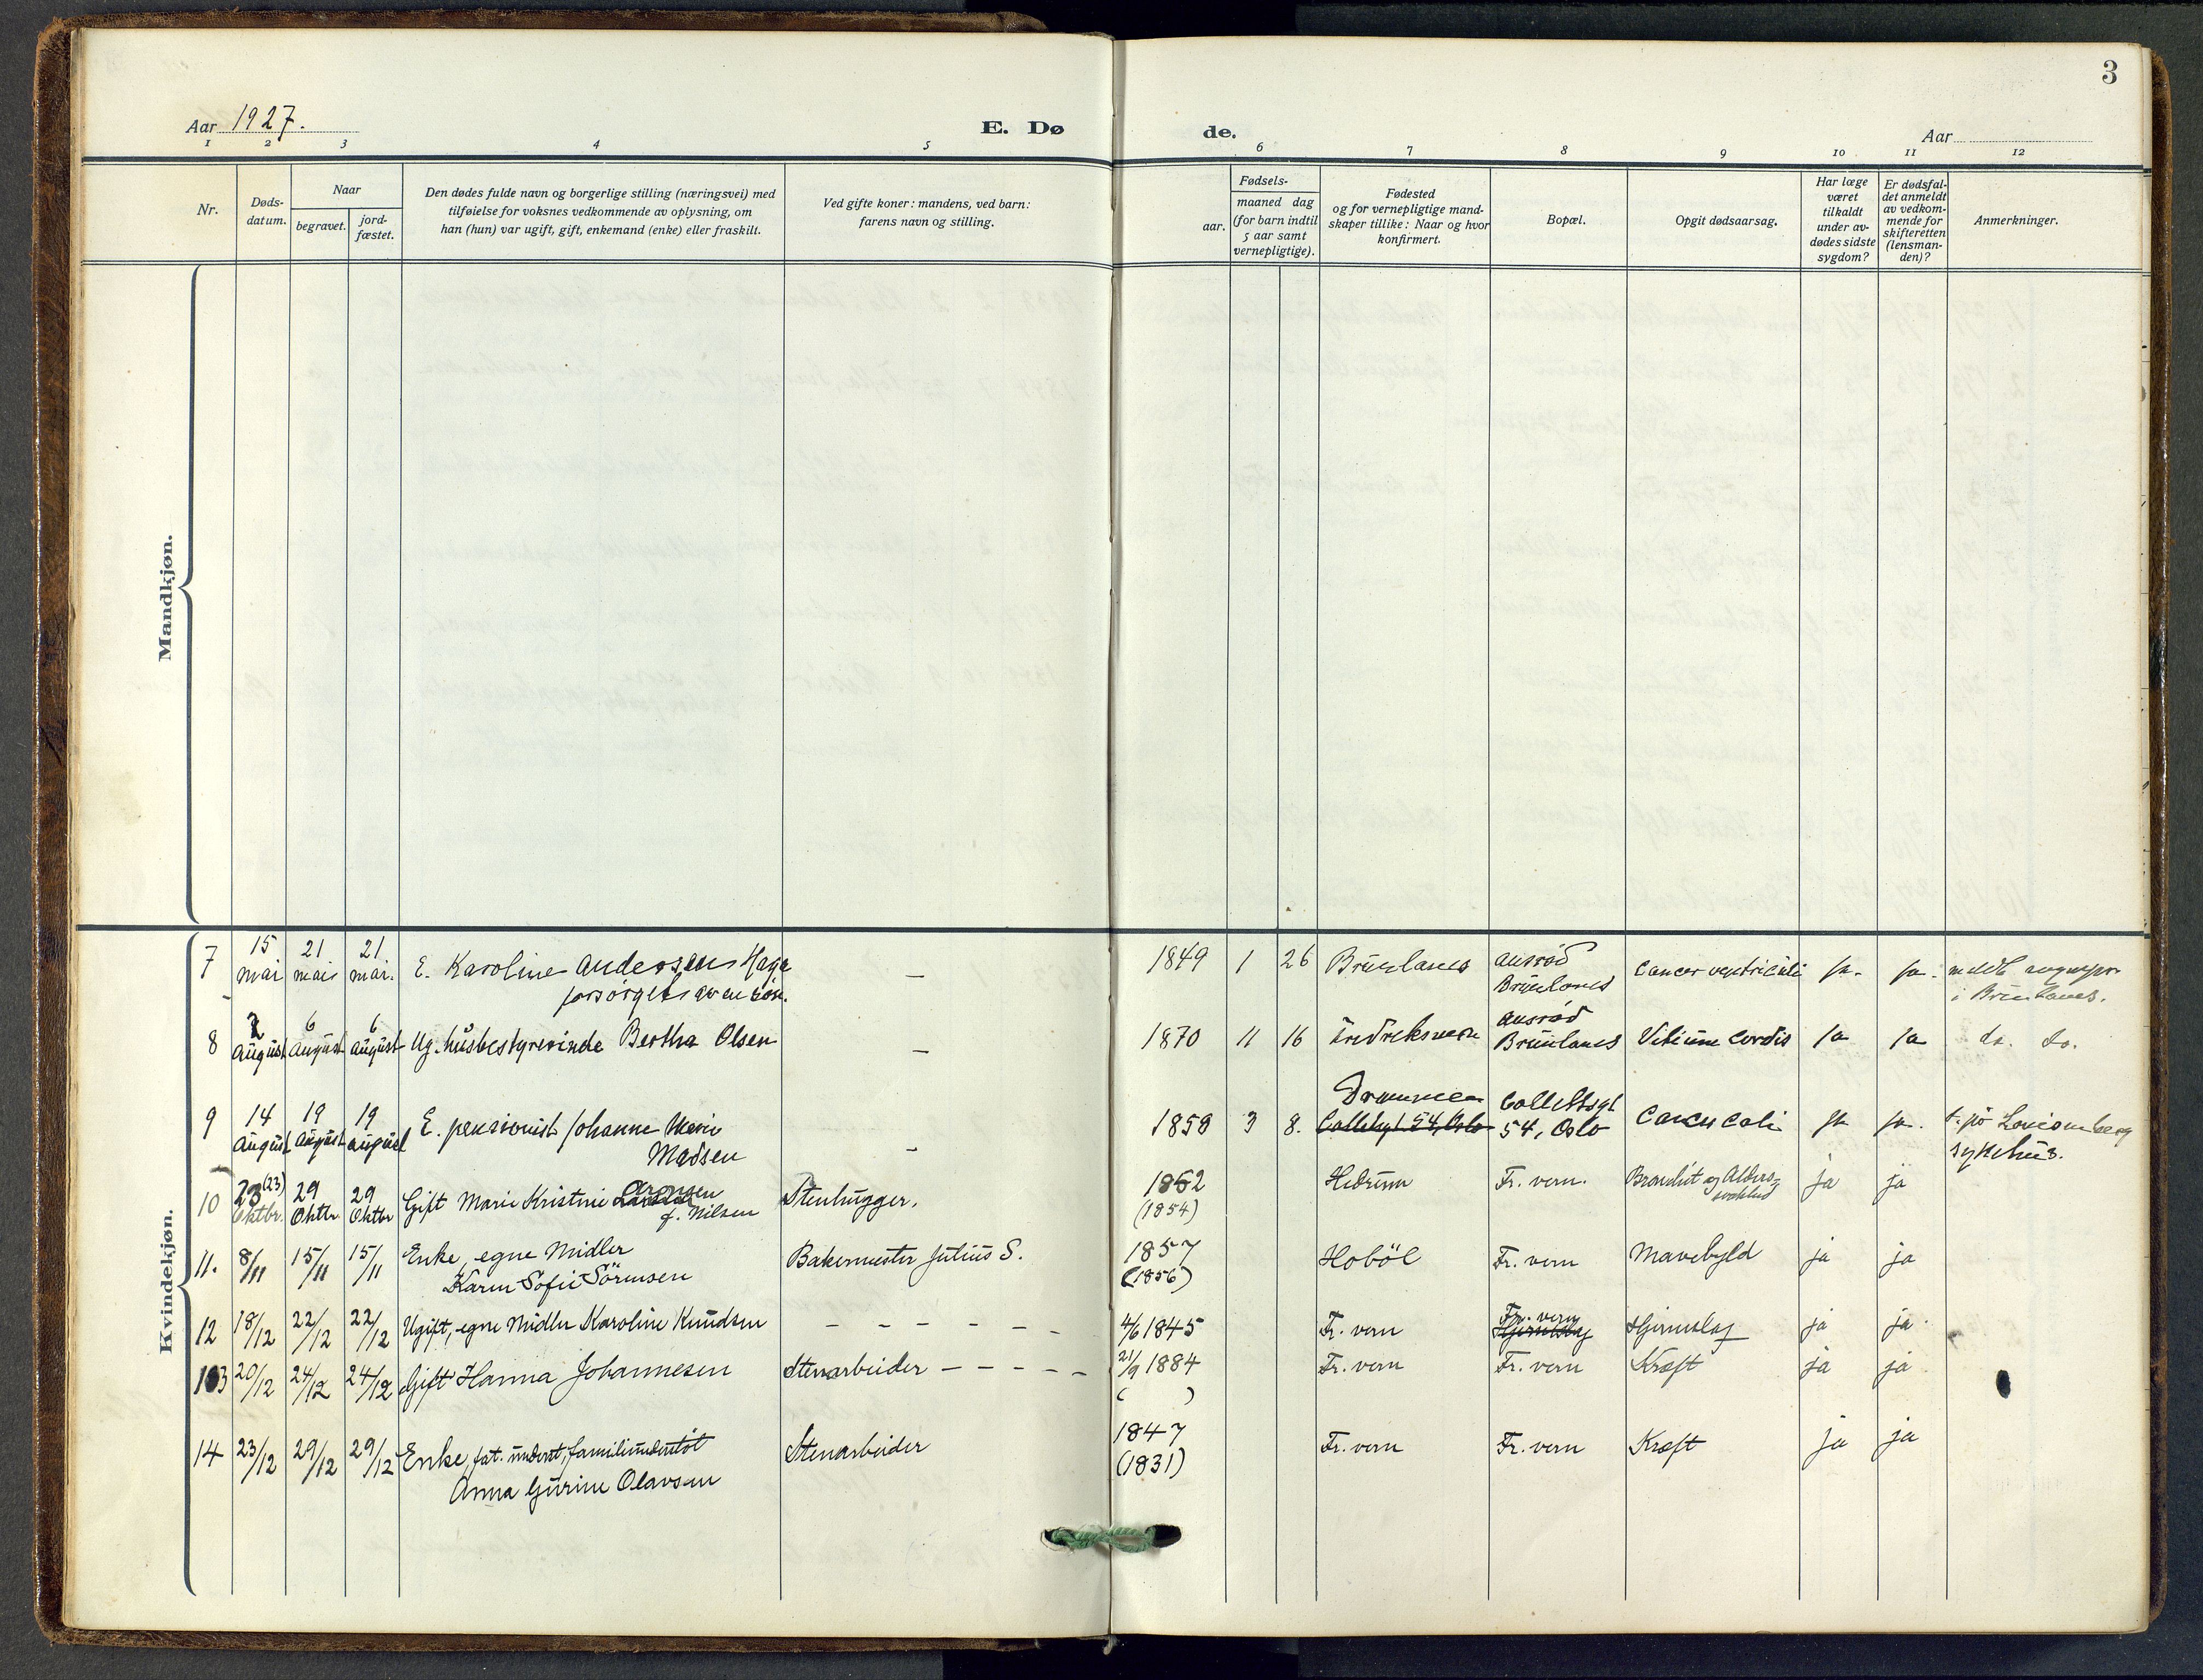 3
Aar 1927.
E. Dø
de.
Aar
1 2 3 4 5 6 7 8 9 10 11 12
Nr.
Døds-
datum.
Naar
begravet.
jord-
fæstet.
Den dødes fulde navn og borgerlige stilling (næringsvei) med
tilføielse for voksnes vedkommende av oplysning, om
han (hun) var ugift, gift, enkemand (enke) eller fraskilt.
Ved gifte koner: mandens, ved barn:
farens navn og stilling.
Fødsels-
aar.
maaned dag
(for barn indtil
5 aar samt
vernepligtige).
Fødested
og for vernepligtige mand-
skaper tillike: Naar og hvor
konfirmert.
Bopæl.
Opgit dødsaarsag.
Har læge
været
tilkaldt
under av-
dødes sidste
sygdom?
Er dødsfal-
det anmeldt
av vedkom-
mende for
skifteretten
(lensman-
den)?
Anmerkninger.
Mandkjøn.
Kvindekjøn.
7 15 mai 21 mai 21 mai. E. Karoline Andersen Haga
forsörget av en sön. —
1849 1 26 Brunlanes Ausröd
Brunlanes Cancer ventriculi ja. ja.
i Brunlanes.
8 2 August 6 August 6 August Ug. husbestyrerinde Bertha Olsen —
1870 11 16 Fredriksvern Ausröd
Brunlanes Vitium cordis ja ja do. do.
9 14 August 19 August 19 August E. pensionist Johanne Marie
Madsen —
1859 3 8. Drammen
Colletsgt. 54, Oslo Collettsgt
54, Oslo Cancer coli ja ja. d. på Lovisenberg
sykehus.
10 23 (23) Oktbr. 29 Oktbr 29 Oktbr Gift Marie Kristine Aronsen
f. Nilsen Stenhugger.
1862
(1854) Hedrum Fr. vern. Bronchit og Alders-
svakhed ja ja
11. 8/11 15/11 15/11 Enke, egne Midler
Karen Sofie Sörensen Bakermester Julius S.
1857
(1856) Hoböl Fr. vern Mavebyld ja ja
12 18/12 22/12 22/12 Ugift, egne Midler Karoline Knudsen – – – – – – –
4/6 1845 Fr. vern Fr. vern
Hjerneslag Hjerneslag ja ja
13 20/12 24/12 24/12 Gift Hanna Johannesen Stenarbeider – – – – –
21/9 1884
( ) Fr. vern Fr. vern Kræft ja ja
14 23/12 29/12 29/12 Enke, fat. underst, familieunderstöt
Anna Gurine Olavsen Stenarbeider
1847
(1831) Fr. vern Fr. vern Kræft ja ja